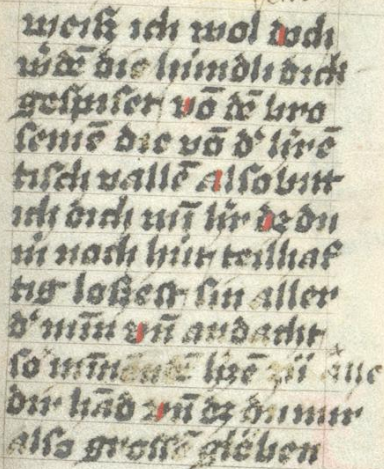 weiſz ich wol doch
wͤdē die hündli dick
geſpiſet vō dē bro
ſemē die vō dˀ hrē
tiſch vallē alſo bitt
ich dich mī hˀr dz du
mī noch hüt teilhaf
tig laſſeſt ſin aller
dˀ mīn vn̄ andacht
ſo hrē zü alle
dir hād vn̄ dz du mir
alſo groſſē glöben